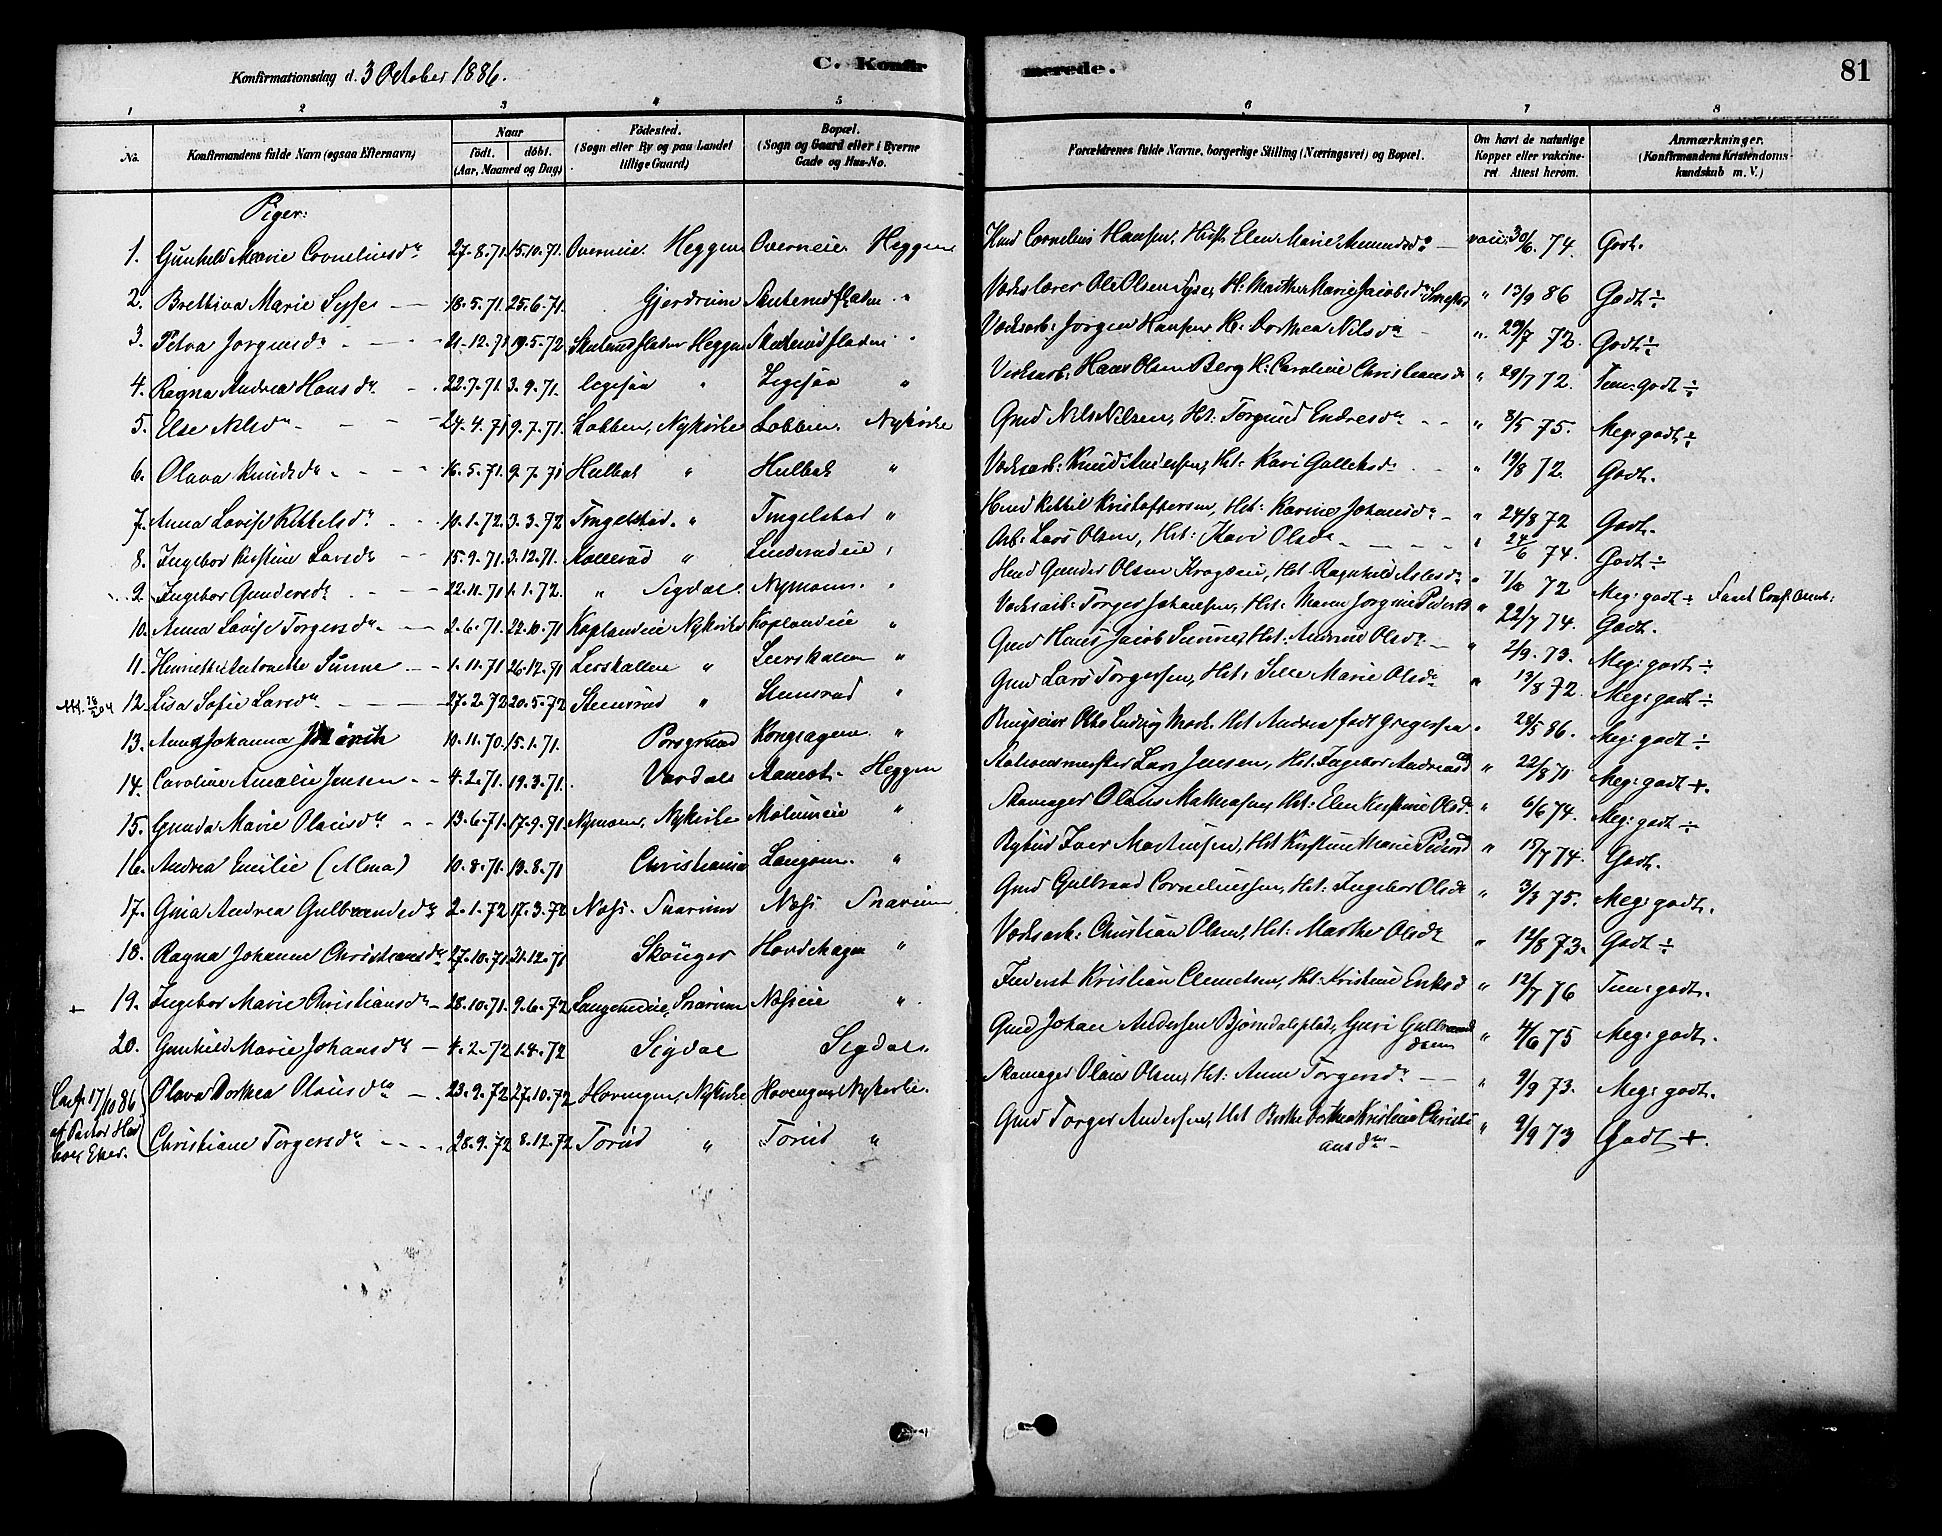 Konfirmationsdag d. 3 October 1886.
C. Konfirmerede.
81
1 2 3 4 5 6 7 8
No.
Konfirmandens fulde Navn (ogsaa Efternavn)
Naar
födt. döbt.
(Aar, Maaned og Dag)
Födested.
(Sogn eller By og paa Landet
tillige Gaard)
Bopæl.
(Sogn og Gaard eller i Byerne
Gade og Hus-No.
Forældrenes fulde Navne, borgerlige Stilling (Næringsvei) og Bopæl.
Om havt de naturlige
Kopper eller vakcine-
ret Attest herom.
Anmærkninger.
(Konfirmandens Kristendoms-
kundskub m. V.)
Piger:
1. Gunhild Marie Corneliusdr 27-8-71. 15.10.71. Overneie Heggen Overneie Heggen Cornelius Hansen, Hust. Elen Marie Amundsdr - vaic. 30/6. 74. Godt.
2. Brettiva Marie Sysse - 18.5.71. 25.6.71. Gjerdrum Skuterudflaten " Ole Olsen Sysse, H: Marthe Marie Jacobsdr " 13/9 86 Godt ÷
3. Petra Jorgensdr - 21-12.71 19.5.72 Skuterudflaten Heggen Skuterudflaten " Værksarb: Jorgen Hansen H: Dorthea Nilsdr " 29/7 72. Godt ÷
4. Ragna Andrea Hansdr - 22.7.71. 3.9.71. " " Værksarb: Hans Olsen Berg H: Caroline Christiansdr " 29/7 72. Tem: godt ÷
5. Else Nilsdr - 24.4.71 9.7.71. Lobben, Nykirke Lobben Nykirke Gmd Nils Nilsen, Hst: Torgund Endresdr - " 8/5 75. Meg: godt ÷
6. Olava Knudsdr - 16.5.71. 9.7.71 Hulbak " Hulbak " Værksarb: Knud Andersen, Hst: Kari Gulleksdr " 19/8 72. Godt.
7. Anna Lovise Kittelsdr - 10.1.72. 3.3.72 Tingelstad " Tingelstad " Kittil Kristoffersen, Hst: Karine Johansdr - " 24/8 72 Godt.
8. Ingebor Kirstine Larsdr 15.9.71. 3.12.71. " Arb: Lars Olsen, Hst: Kari Olsdr - " 24/6 74. Godt ÷
9. Ingebor Gundersdr - 22.11.71 1.1.72. " Sigdal. Nymoen " Gunder Olsen, Hst Ragnhild Aslesdr " 72 Meg: godt ÷
10. Anna Lovise Torgersdr - 2.6.71. 22.10.71 Koplandeie Nykirke Koplandeie " Værksarb: Torger Johansen, Hst: Maren Jorgine Pedersdr " 22/7 74. Godt.
11. Henriette Antonette Sunne - 1.11.71 26.12.71 Leerskallen " Leerskallen " Gmd Hans Jacob Sunne, Hst: Andrine Olsdr - " 2/9. 73. Meg: godt ÷
12. Lisa Sofie Larsdr - 27.2.72 20.5.72 Stensrud " Stensrud " Gmd Lars Torgersen, Hst: Sille Marie Olsdr " 13/8 72. Meg: godt ÷
13. Anna Johanna Mörch 10.11.70. 15.1.71. Porsgrund Kongsagene " Otto Ludvig Mörch. Hst Andrea födt Gregersen " 28/5 86. Meg: godt ÷
14. Caroline Amalie Jensen - 4.2.71. 19.3.71. Vardal Aamot. Heggen Stationsmester Lars Jensen, Hst: Ingebor Andreasd " 22/8 71 Meg: godt +.
15. Gunda Marie Olausdr - 13.6.71. 17.9.71. Nymoen, Nykirke " Skomager Olaus Mathiasen, Hst: Elen Kirstine Olsdr " 6/6 74. Meg: godt ÷
16. Andrea Emilie (Alma) 10.8.71. 13.8.71 Christiania Langoen. " Iver Martinsen, Hst Kirstine Marie Pedersd " 15/7 74. Godt.
17. Gina Andrea Gulbrandsdr 2.1.72 17.3.72 Næss. Snarum Næss. Snarum. Gmd Gulbrand Corneliussen, Hst: Ingebor Olsdr " 3/3 75. Meg: godt.
18. Ragna Johanne Christiansdr 27.10.71. 21.12.71 Skouger Hovdehagen " Værksarb: Christian Olsen, Hst: Marthe Olsdr " 12/8 73. Godt ÷
19. Ingebor Marie Christiansdr - 28.10.71. 9.6.72 Snarum Næsseie ". Inderst Kristian Clemetsen, Hst: Kristine Eriksd " 12/7 76 Tem: godt.
20. Gunhild Marie Johansdr - 4.2.72 1.4.72 Sigdal Sigdal. Gmd Johan Andersen Bjørndalsplads, Guri Gulbrands
datter " 4/6 75 Meg: godt.
Conf. 17/10 86 af Pastor
Eker.
Olava Dorthea Olausdr - 23.9.72 27.10.72 Hovengen, Nykirke Hovengen Nykirke. Skomager Olaus Olsen, Hst: Anne Torgersdr - " 9/9 73. Meg: godt.
Christiane Torgersdr - 28.9.72 8.12.72 Torud " Torud " Gmd Torger Andersen, Hst Berthe Dorthea Kristine Christi
ansdr - " 9/9 73 Godt +.